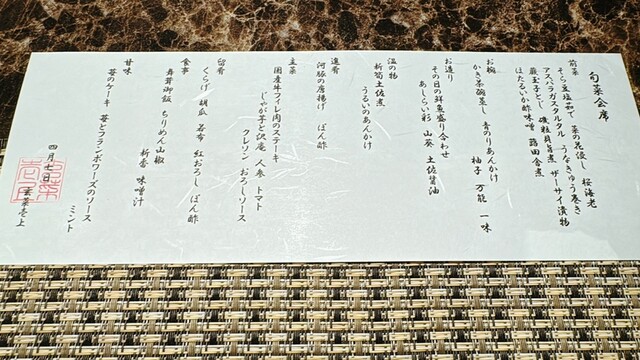 旬菜会席
前菜
そら豆塩茹で 菜の花浸し 桜海老
アスパラガスタルタル うなきゅう巻き
蕨玉子とじ 磯粒貝旨煮 ザーサイ漬物
ほたるいか酢味噌 蕗田舎煮
お椀
かき茶碗蒸し 青のりあんかけ
柚子 万能 一味
お造り
その日の鮮魚盛り合わせ
あしらい彩 山葵 土佐醤油
温の物
新筍土佐煮
うるいのあんかけ
進肴
河豚の唐揚げ ぽん酢
主菜
国産牛フィレ肉のステーキ
じゃが芋と沢庵 人参 トマト
クレソン おろしソース
留肴
くらげ 胡瓜 若布 紅おろし ぽん酢
食事
舞茸御飯 ちりめん山椒
新香 味噌汁
甘味
苺のケーキ 苺とフランボワーズのソース
ミント
四月七日